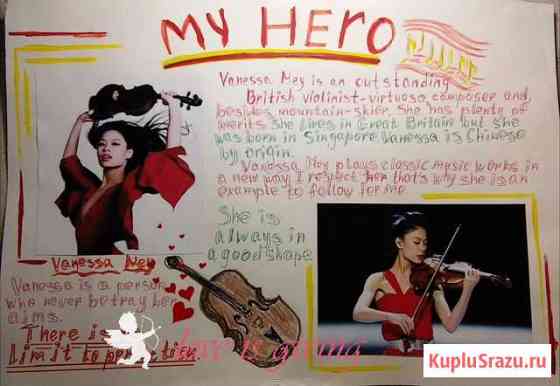 MY HERO
Vanessa Mey is an outstanding
British violinist-virtuoso, composer and,
besides, mountain-skier. She has plenty of
merits. She lives in Great Britain but she
was born in Singapore. Vanessa is Chinese
by origin.
Vanessa Mey plays classic music works in
a new way. I respect her that's why she is an
example to follow for me.
She is
always in
a good shape
Vanessa Mey
Vanessa is a person
who never betray her
aims.
There is
limit to
love is giving
KupluSrazu.ru